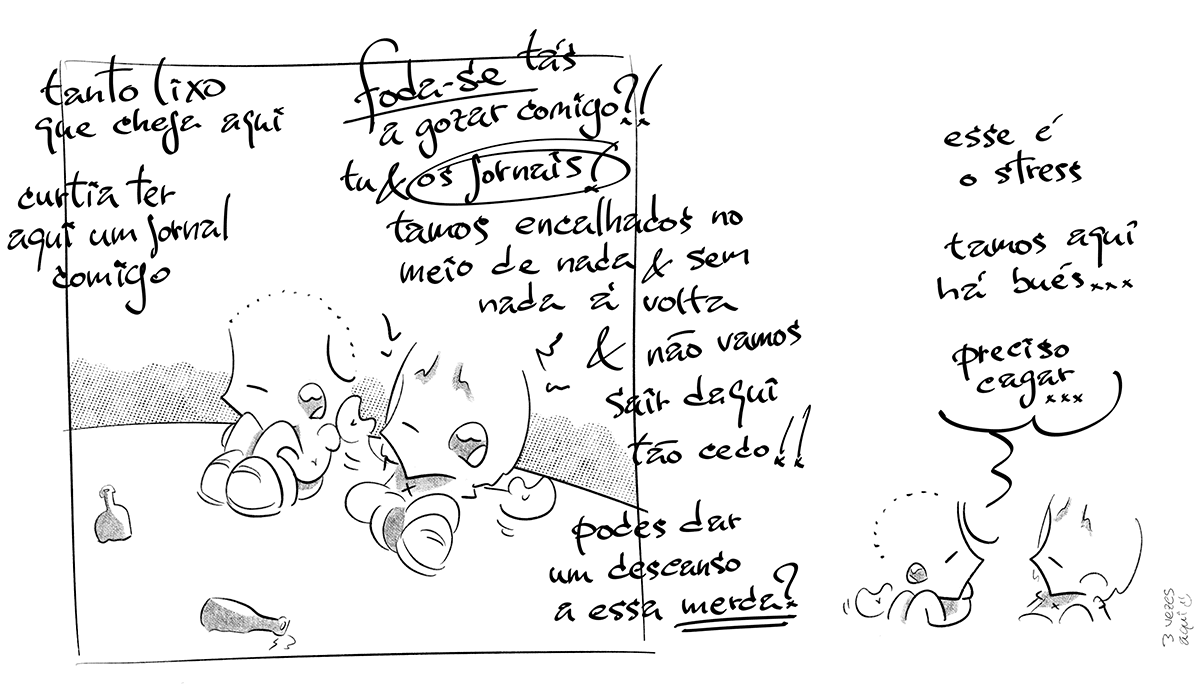 tanto lixo
que chega aqui
curtia ter
aqui um jornal
comigo
foda-se tás
a gozar comigo?!
tu & os jornais!
tamos encalhados no
meio de nada & sem
nada á volta
& não vamos
sair daqui
tão cedo!!
podes dar
um descanso
a essa merda?
esse é
o stress
tamos aqui
há bués...
preciso
cagar...
3 vezes
aqui